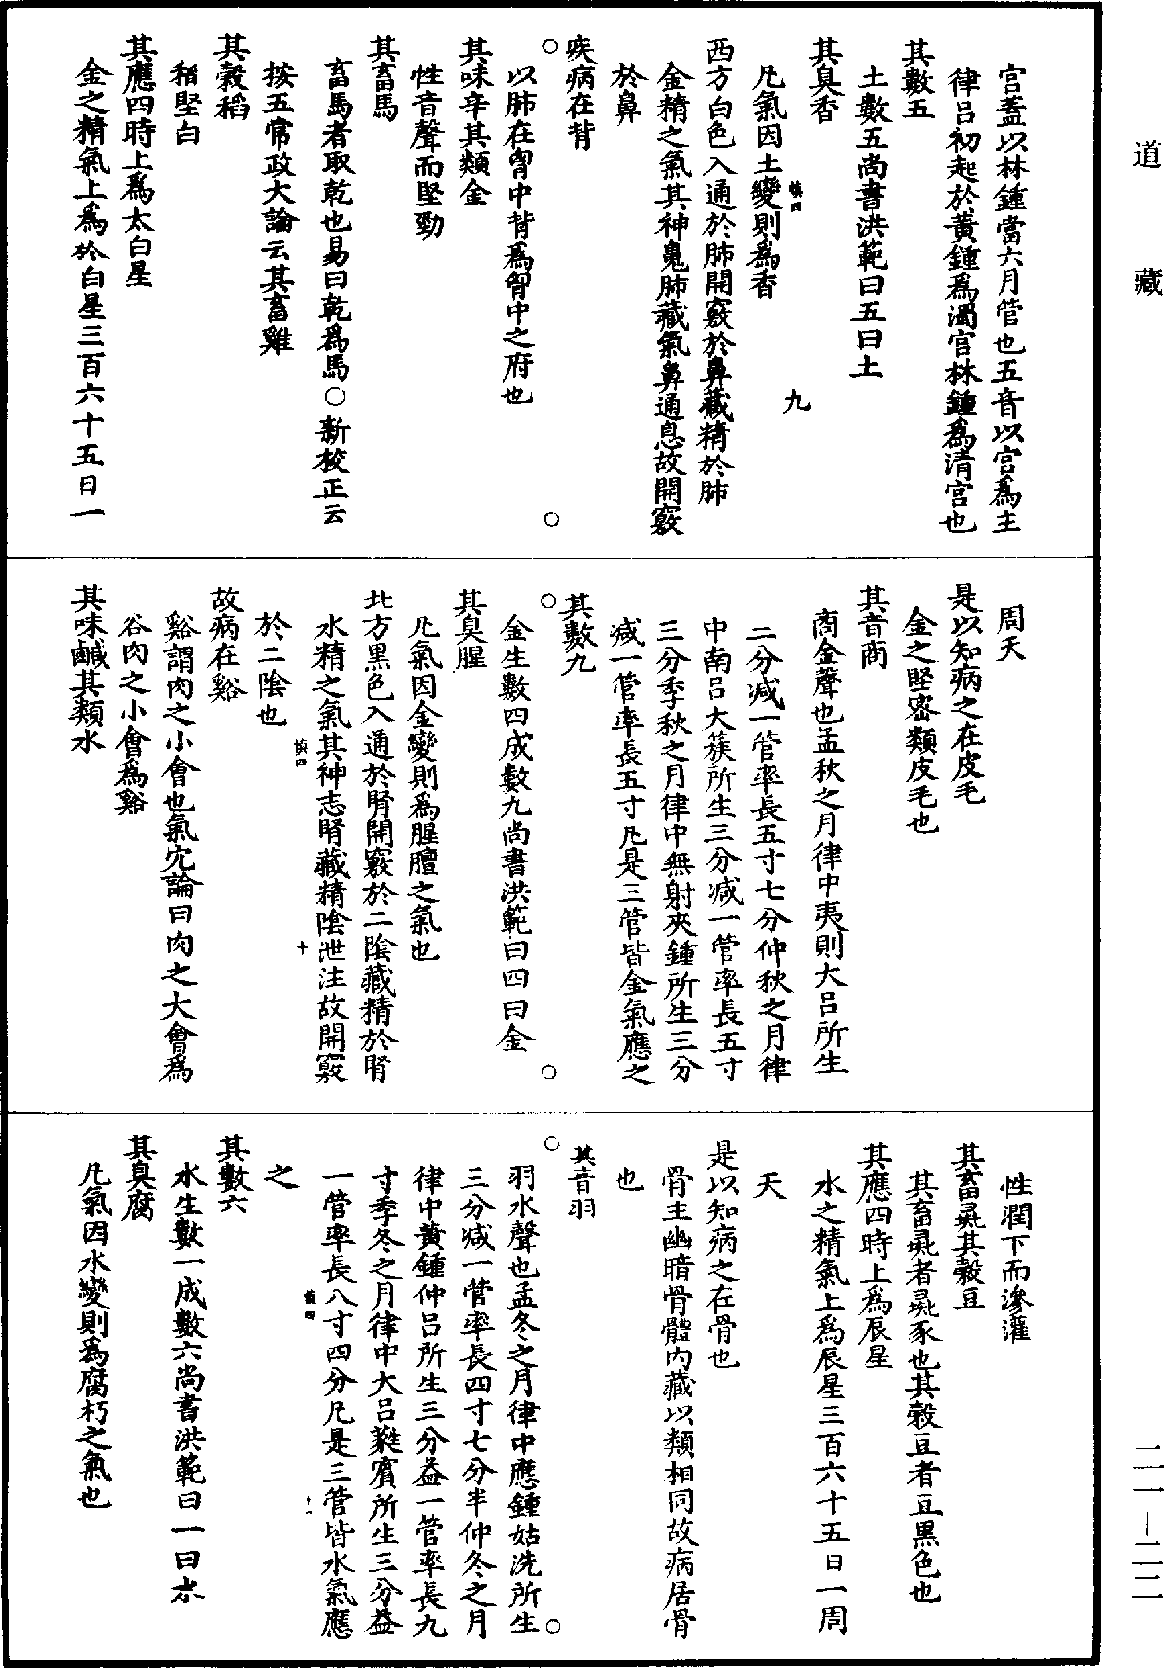 道藏
宮蓋以林鍾當六月管也五音以宮爲主
律呂初起於黃鍾爲濁宮林鍾爲清宮也
其數五
土數五尚書洪範曰五曰土
其臭香
凡氣因土變則爲香
慎四
九
西方白色入通於肺開竅於鼻藏精於肺
金精之氣其神魄肺藏氣鼻通息故開竅
於鼻
疾病在背
以肺在胷中背爲胷中之府也
其味辛其類金
性音聲而堅勁
其畜馬
畜馬者取乾也易曰乾爲馬○新校正云
按五常政大論云其畜雞
其穀稻
稻堅白
其應四時上爲太白星
金之精氣上爲於白星三百六十五日一
周天
是以知病之在皮毛
金之堅密類皮毛也
其音商
商金聲也孟秋之月律中夷則大呂所生
二分減一管率長五寸七分仲秋之月律
中南呂大簇所生三分減一管率長五寸
三分季秋之月律中無射夾鍾所生三分
減一管率長五寸凡是三管皆金氣應之
其數九
金生數四成數九尚書洪範曰四曰金
其臭腥
凡氣因金變則爲腥膻之氣也
北方黑色入通於腎開竅於二陰藏精於腎
水精之氣其神志腎藏精陰泄注故開竅
慎四
十
於二陰也
故病在谿
谿謂肉之小會也氣穴論曰肉之大會爲
谷肉之小會爲谿
其味鹹其類水
性潤下而滲灌
其畜彘其穀豆
其畜彘者彘豕也其穀豆者豆黑色也
其應四時上爲辰星
水之精氣上爲辰星三百六十五日一周
天
是以知病之在骨也
骨主幽暗骨體內藏以類相同故病居骨
也
其音羽
羽水聲也孟冬之月律中應鍾姑洗所生
三分減一管率長四寸七分半仲冬之月
律中黃鍾仲呂所生三分益一管率長九
寸季冬之月律中大呂蕤賓所生三分益
一管率長八寸四分凡是三管皆水氣應
慎四
十一
之
其數六
水生數一成數六尚書洪範曰一曰水
其臭腐
凡氣因水變則爲腐朽之氣也
二一—二二